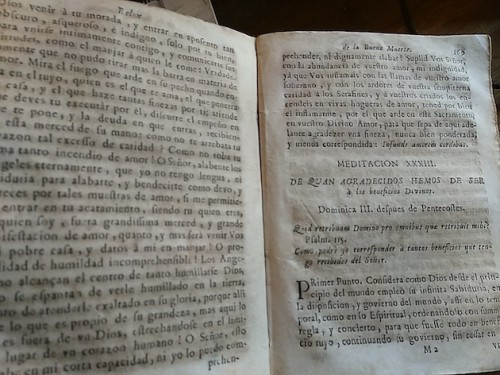 Relox
Dios venir à tu morada, y entrar en aposento tan
obscuro, asqueroso, é indigno, solo por tu bien,
para unirse intimamente contigo, y comunicarte sus
como el manjar à quien le come? Verdadera-
mente que no pudo tirar mas la barra en materia de
amor. Mira el fuego que arde en su pecho quando en-
tra en el tuyo, quien es el que te ama, el que penetra
tu casa, y el que haze tantas finezas por ti; atiende
que deves tu executar por él, discurre el
te pone, y la deuda en que entras, recibiendo
esta merced de su mano: como no te arrebata tu
corazon tal excesso de caridad! Como no roba tu
tanto incendio de amor! O Señor, alabente los
Angeles eternamente, que yo no tengo lengua,
sabiduria para alabarte, y bendecirte como devo, y
mereces por tales muestras de amor, si me permities
entrar en tu acatamiento, siendo tu quien eres,
quien soy, fuera grandissima merced, y grande
manifestacion de amor, quanto, y mas serà venir Vos
mi pobre casa, y datos à mi en manjar! O pro-
fundidad de humildad incomprehensible! Los Ange-
no alcançan el centro de tanto humillarse Dios,
se espantan de verle humillado en la tierra,
de atenderle exaltado en su gloria, porque alli
lo que es propio de su grandeza, mas aqui lo
es fuera de vn Dios, estrechandose en el humi-
lugar de vn corazon humano! O Señor, esto
cabe en mi corta capacidad, ni yo lo puedo com-
prehen-
de la Buena Muerte.
prehender, ni dignamente alabar! Suplid Vos Señor,
con la abundancia de vuestro amor, mi indignidad,
yà que Vos inflamais con las llamas de vuestro amor
soberano, y con los ardores de vuestra ardentissima
caridad à los Serafines, y à vuestros criados los en-
cendeis en vivas hogueras de amor, tened por bien
el inflamarme, por el que arde en este Sacramento,
en vuestro Divino Amor, para que sepa de aqui ade-
lante agradezer vna fineza, nunca bien ponderada,
y menos correspondida: Infunde amorem cordibus.
MEDITACION XXXIII.
DE QUAN AGRADECIDOS HEMOS DE SER
à los beneficios Divinos.
Dominica III. despues de Pentecostes.
Quid retribuam Domino pro omnibus que retribuit mihi?
Psalm. 115.
Como podrè yo corresponder à tantos beneficios que ten-
go recebidos del Señor.
Primer Punto. Considera como Dios desde el prin-
cipio del mundo empleò su infinita Sabiduria, en
la disposicion, y govierno del mundo, assi en lo tem-
poral, como en lo Espiritual, ordenandolo con suma
regla, y concierto, para que fuesse todo en benefi-
cio tuyo, continuando su govierno, sin cessar en
M 2